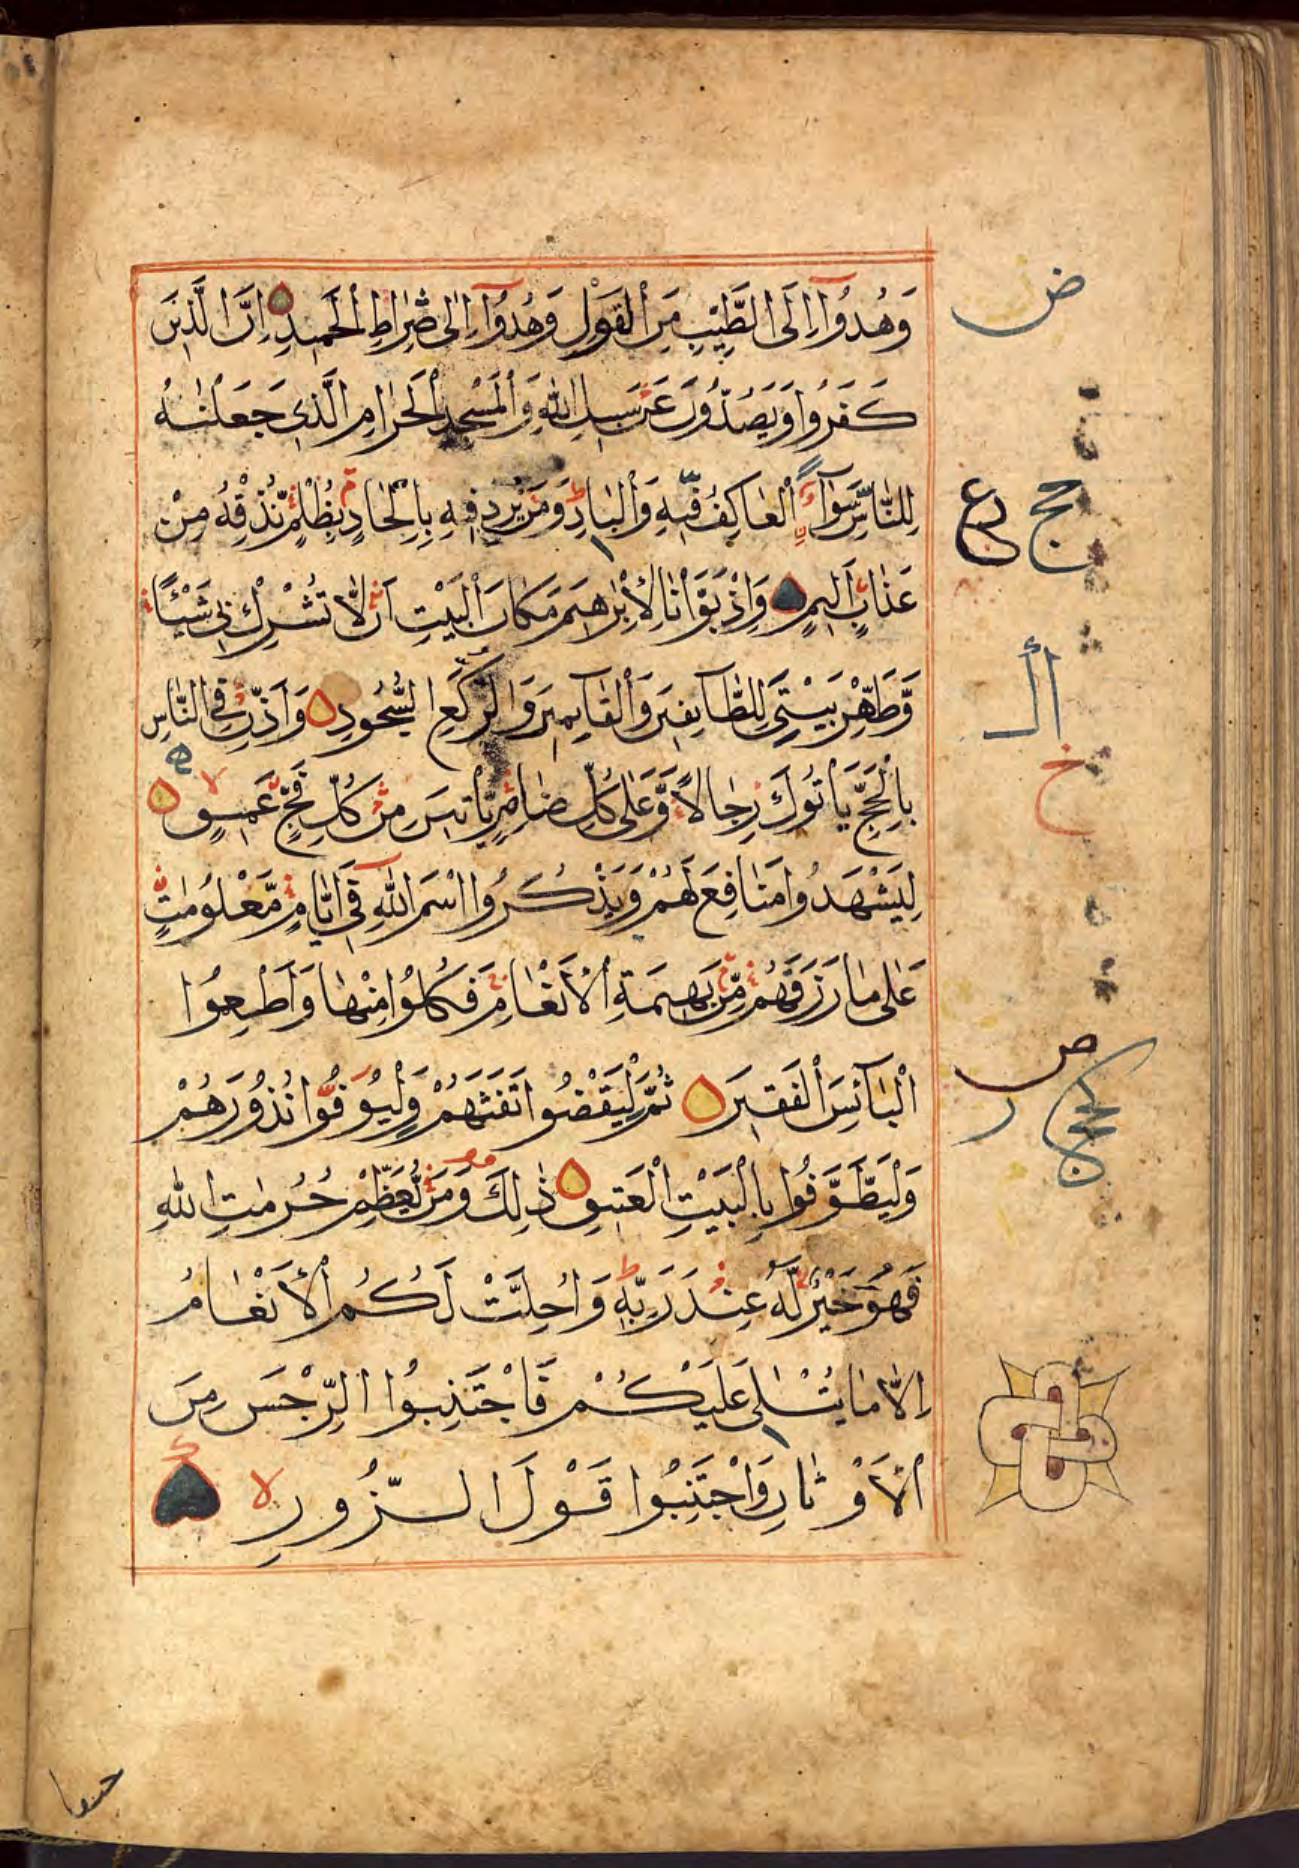 وَهُدُوٓا إِلَى الطَّيِّبِ مِنَ الْقَوْلِ وَهُدُوٓا إِلٰى صِرٰطِ الْحَمِيدِ اِنَّ الَّذِينَ
كَفَرُوا وَيَصُدُّونَ عَنْ سَبِيلِ اللّٰهِ وَالْمَسْجِدِ الْحَرَامِ الَّذِي جَعَلْنٰهُ
لِلنَّاسِ سَوَآءً الْعَاكِفُ فِيهِ وَالْبَادِ وَمَنْ يُرِدْ فِيهِ بِاِلْحَادٍ بِظُلْمٍ نُذِقْهُ مِنْ
عَذَابٍ اَلِيمٍ وَاِذْ بَوَّأْنَا لِاِبْرٰهِيمَ مَكَانَ الْبَيْتِ اَنْ لَّا تُشْرِكْ بِي شَيْئًا
وَّطَهِّرْ بَيْتِيَ لِلطَّآئِفِينَ وَالْقَآئِمِينَ وَالرُّكَّعِ السُّجُودِ وَاَذِّنْ فِي النَّاسِ
بِالْحَجِّ يَأْتُوكَ رِجَالًا وَّعَلٰى كُلِّ ضَامِرٍ يَّأْتِينَ مِنْ كُلِّ فَجٍّ عَمِيقٍ
لِيَشْهَدُوا مَنَافِعَ لَهُمْ وَيَذْكُرُوا اسْمَ اللّٰهِ فِي اَيَّامٍ مَّعْلُومٰتٍ
عَلٰى مَا رَزَقَهُمْ مِّنْ بَهِيمَةِ الْاَنْعَامِ فَكُلُوا مِنْهَا وَاَطْعِمُوا
الْبَآئِسَ الْفَقِيرَ ثُمَّ لْيَقْضُوا تَفَثَهُمْ وَلْيُوفُوا نُذُورَهُمْ
وَلْيَطَّوَّفُوا بِالْبَيْتِ الْعَتِيقِ ذٰلِكَ وَمَنْ يُّعَظِّمْ حُرُمٰتِ اللّٰهِ
فَهُوَ خَيْرٌ لَّهُ عِنْدَ رَبِّهِ وَاُحِلَّتْ لَكُمُ الْاَنْعَامُ
اِلَّا مَا يُتْلٰى عَلَيْكُمْ فَاجْتَنِبُوا الرِّجْسَ مِنَ
الْاَوْثَانِ وَاجْتَنِبُوا قَوْلَ الزُّورِ